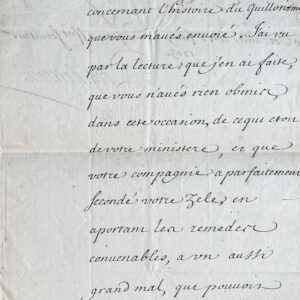 concernant l'histoire du Quillotisme
que vous m'avés envoié. J'ai vu
par la lecture, que j'en ai faite,
que vous n'avés rien obmis,
dans cete occasion, de ce qui etoit
de votre ministere, et que
votre compagnie a parfaitement
secondé votre zele, en
aportant les remedes
convenables, a un aussi
grand mal, que pouvoit